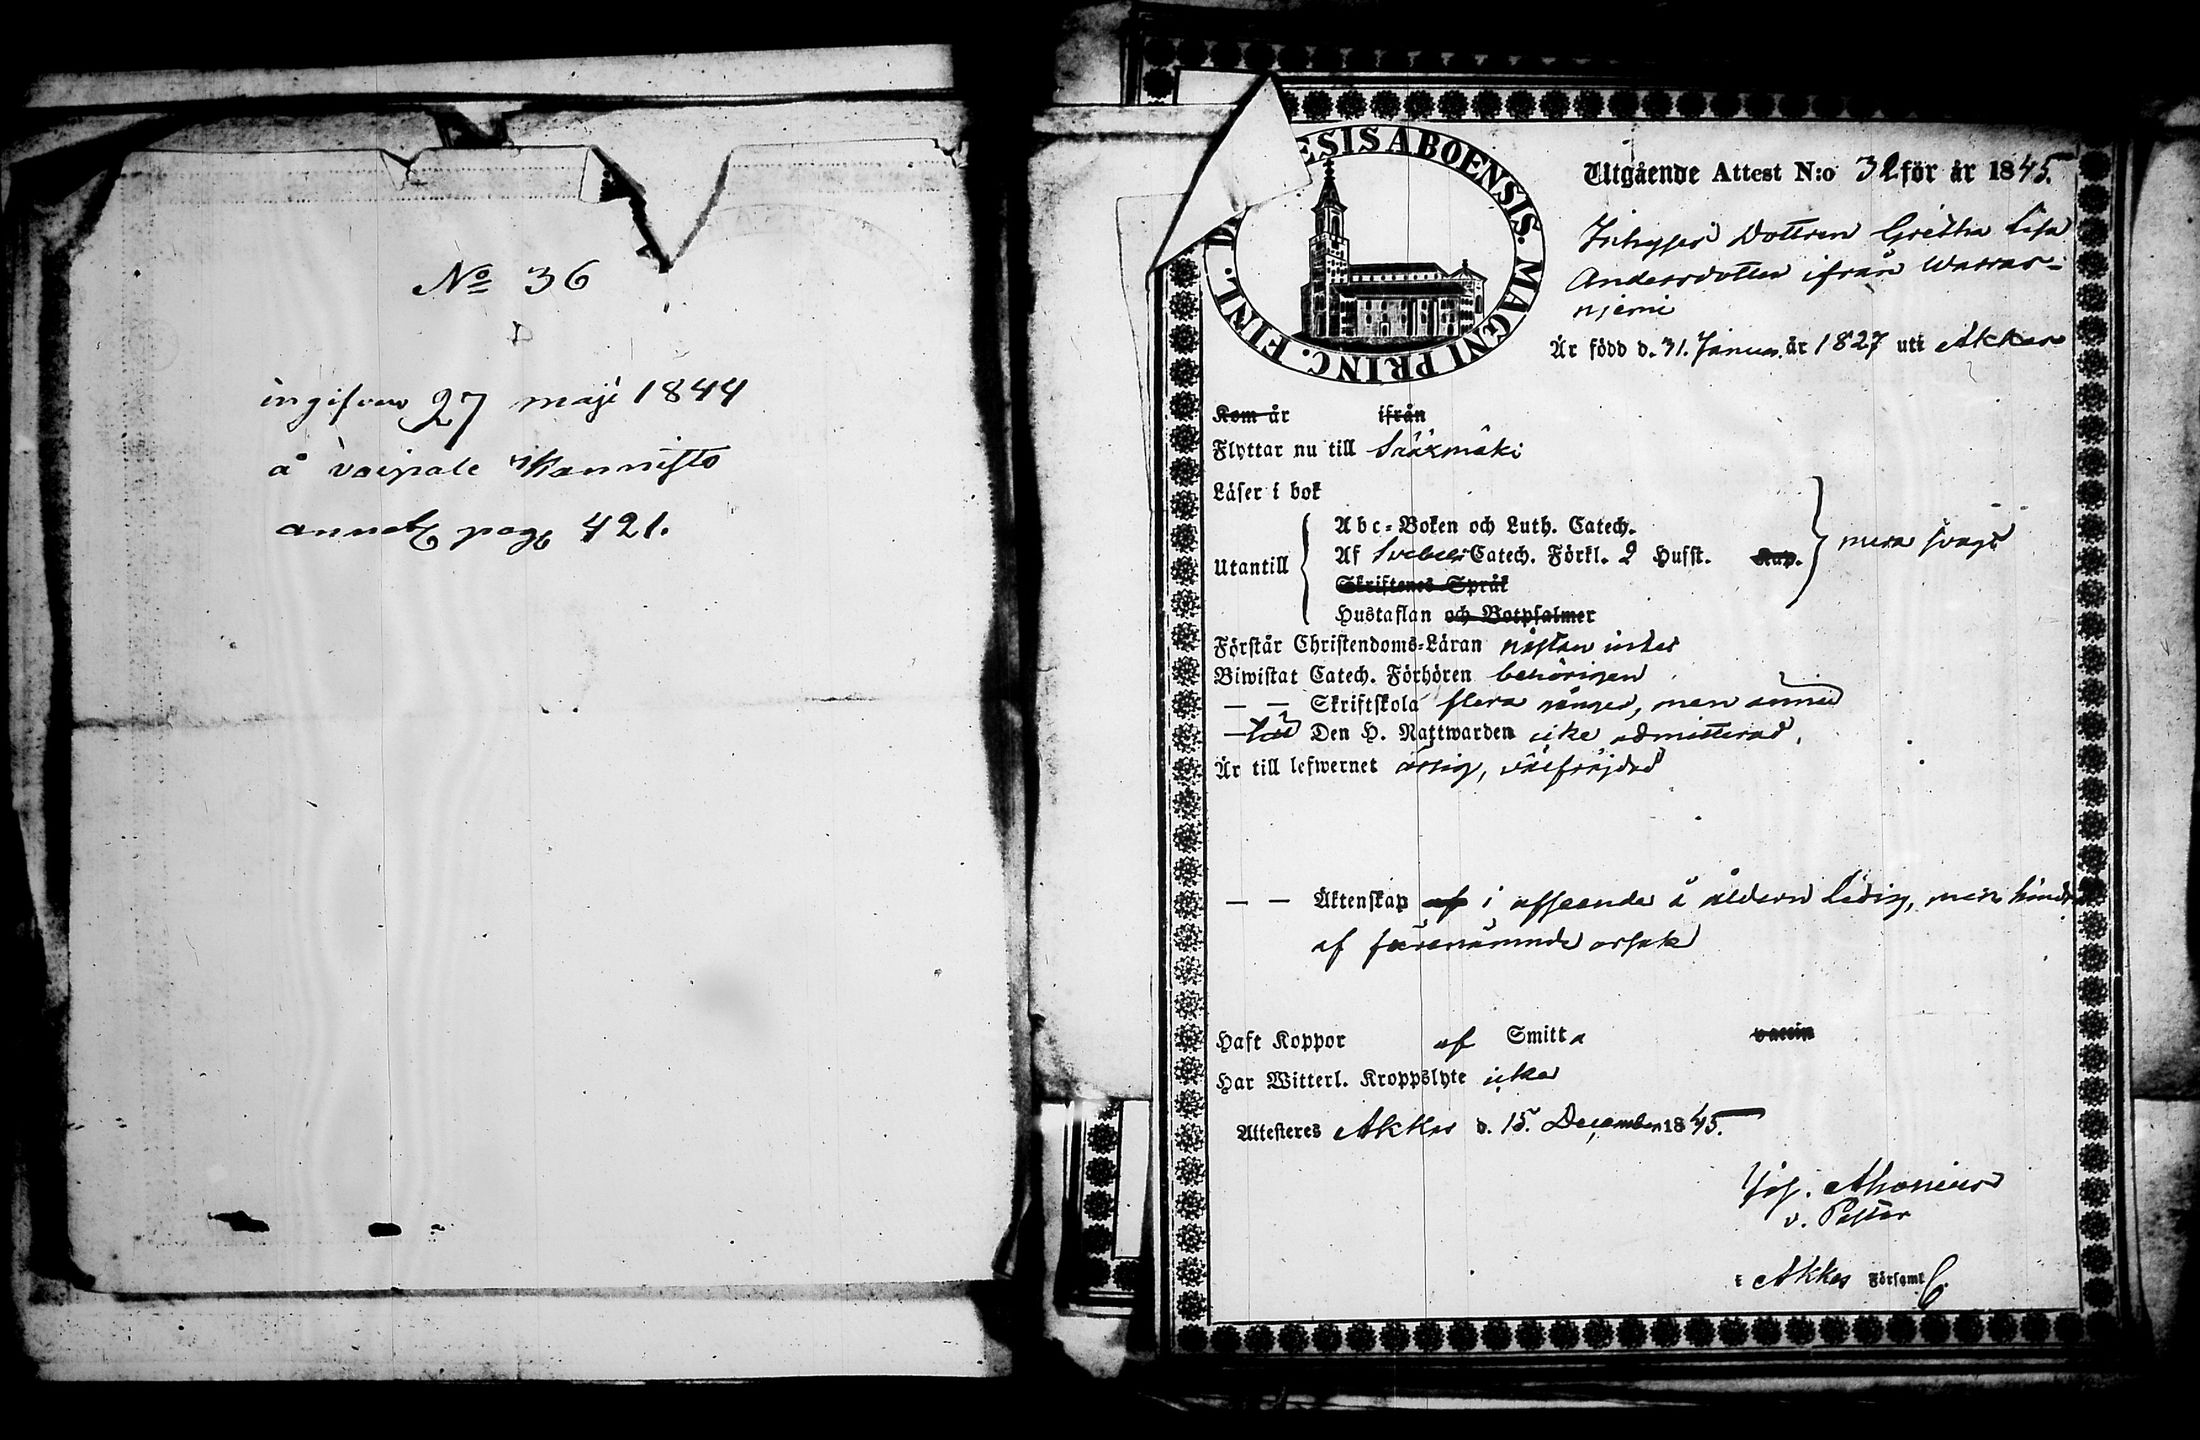 No 36
ingifven 27 maji 1844
å Voipale Mannisto
annot pag 421.
ESIS ABOENSIS. MAGNI PRINC. FINL. D
Utgående Attest N:o 32 för år 1845.
Inhyses Dottren Gretha Lisa
Andersdotter ifrån Warras-
njemi
Är född d. 31. Januar. år 1827 uti Akkas
Kom år ifrån
Flyttar nu till Sääxmäki
Läser i bok
Abc-Boken och Luth. Catech.
Utantill Af Svebel. Catech. Förkl. 2 Husst. Kap. mera svagt
Skriftenes Språk
Hustaflan och Botpsalmer
Förstår Christendoms-Läran nästan intet
Biwistat Catech. Förhören behörigen
— — Skriftskola flera gånger, men ännu
— till Den H. Nattwarden icke admitterad.
Är till lefwernet ärlig, välfräjdad
— — Äktenskap af i afseende å åldern ledig, men hindrad
af förenämnde orsak
Haft Koppor af Smitta vaccin
Har Witterl. Kroppslyte icke
Attesteres Akkas d. 15. December 1845.
Joh. Ahonius
v. Pastor
i Akkas Församl.